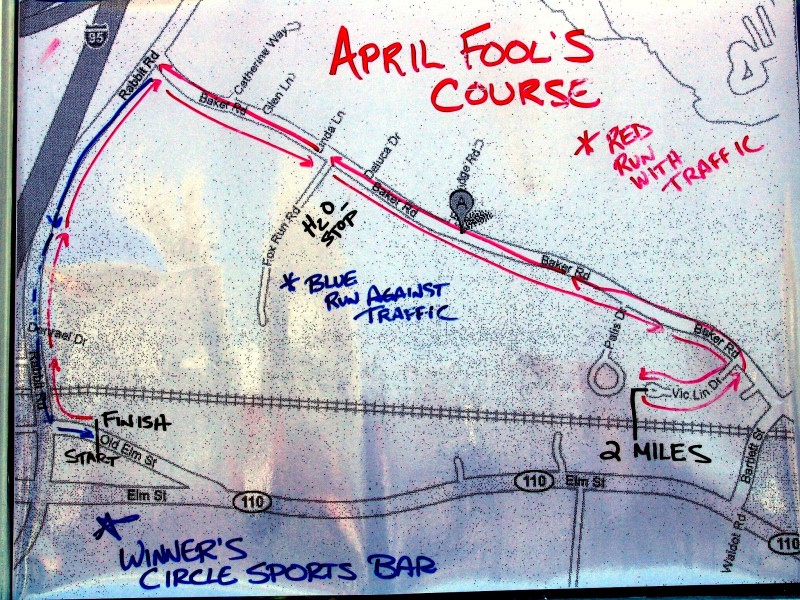 95
APRIL FOOL'S
COURSE
Rabbit Rd
Catherine Way
Baker Rd
Glen Ln
Linda Ln
Daluca Dr
* RED
RUN
WITH
TRAFFIC
A
Baker Rd
Fox Run Rd
H2O
STOP
Baker Rd
* BLUE
RUN AGAINST
TRAFFIC
Palls Dr
Baker Rd
Vic Lin Dr
FINISH
START
Old Elm St
2 MILES
Bartlett St
Elm St
110
110
Elm St
Waldor Rd
110
* WINNER'S
CIRCLE SPORTS BAR